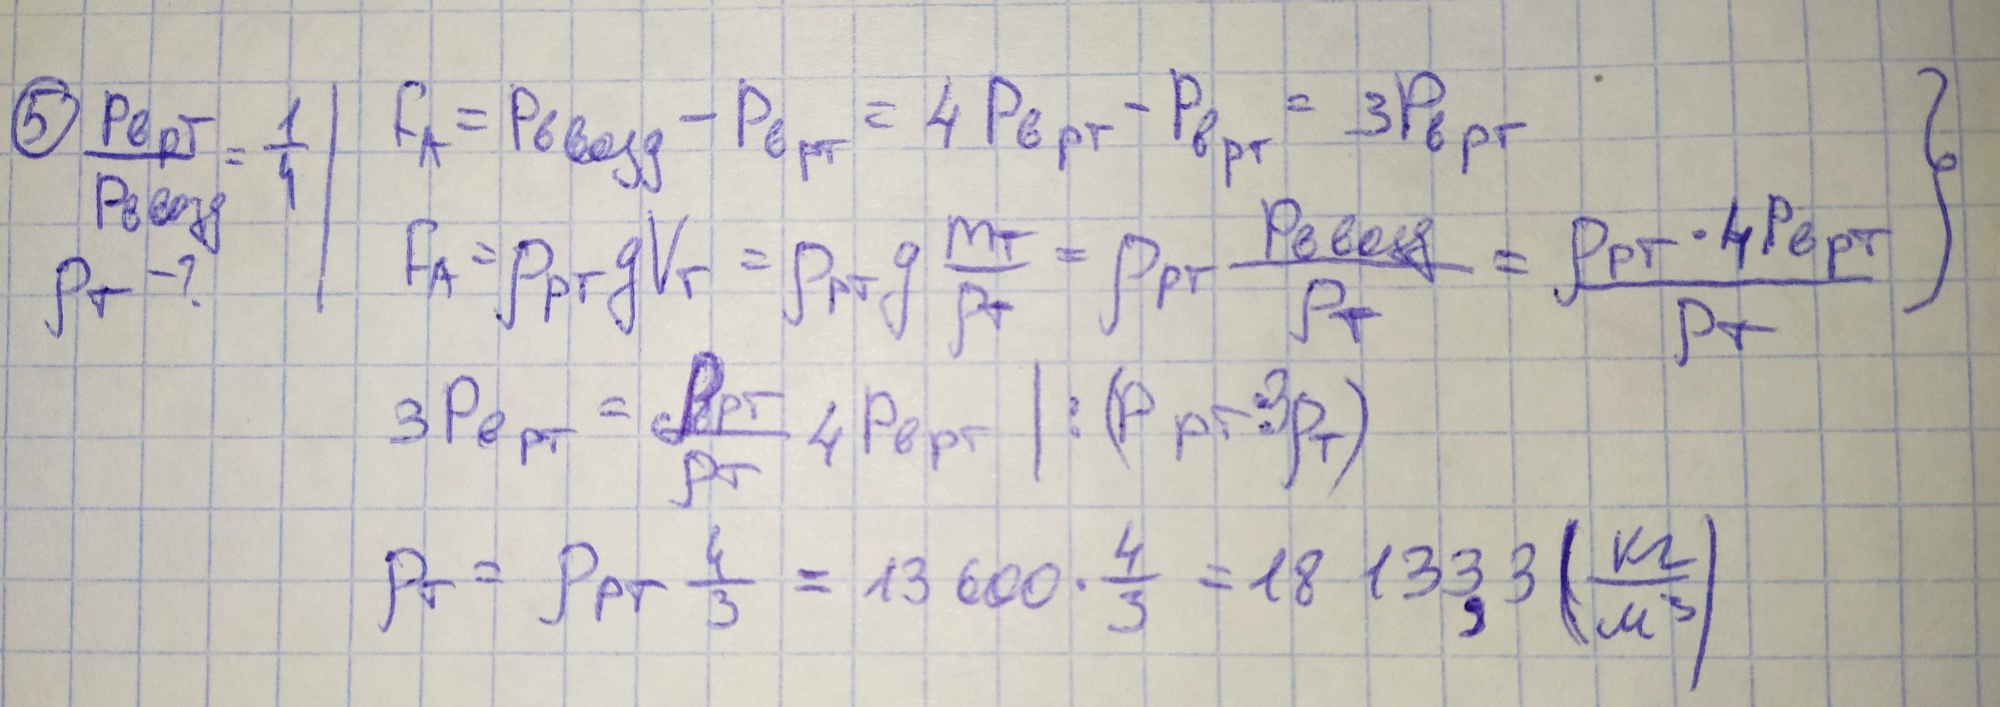 ⑤ Pв рт / Pв возд = 1/4 | F_A = Pв возд − Pв рт = 4 Pв рт − Pв рт = 3Pв рт }
ρт − ? | F_A = ρрт g Vт = ρрт g mт/ρт = ρрт Pв возд/ρт = ρрт · 4Pв рт/ρт
3Pв рт = ρрт/ρт 4Pв рт | : (Pрт : 3ρт)
ρт = ρрт 4/3 = 13 600 · 4/3 = 18 133,3 (кг/м³)